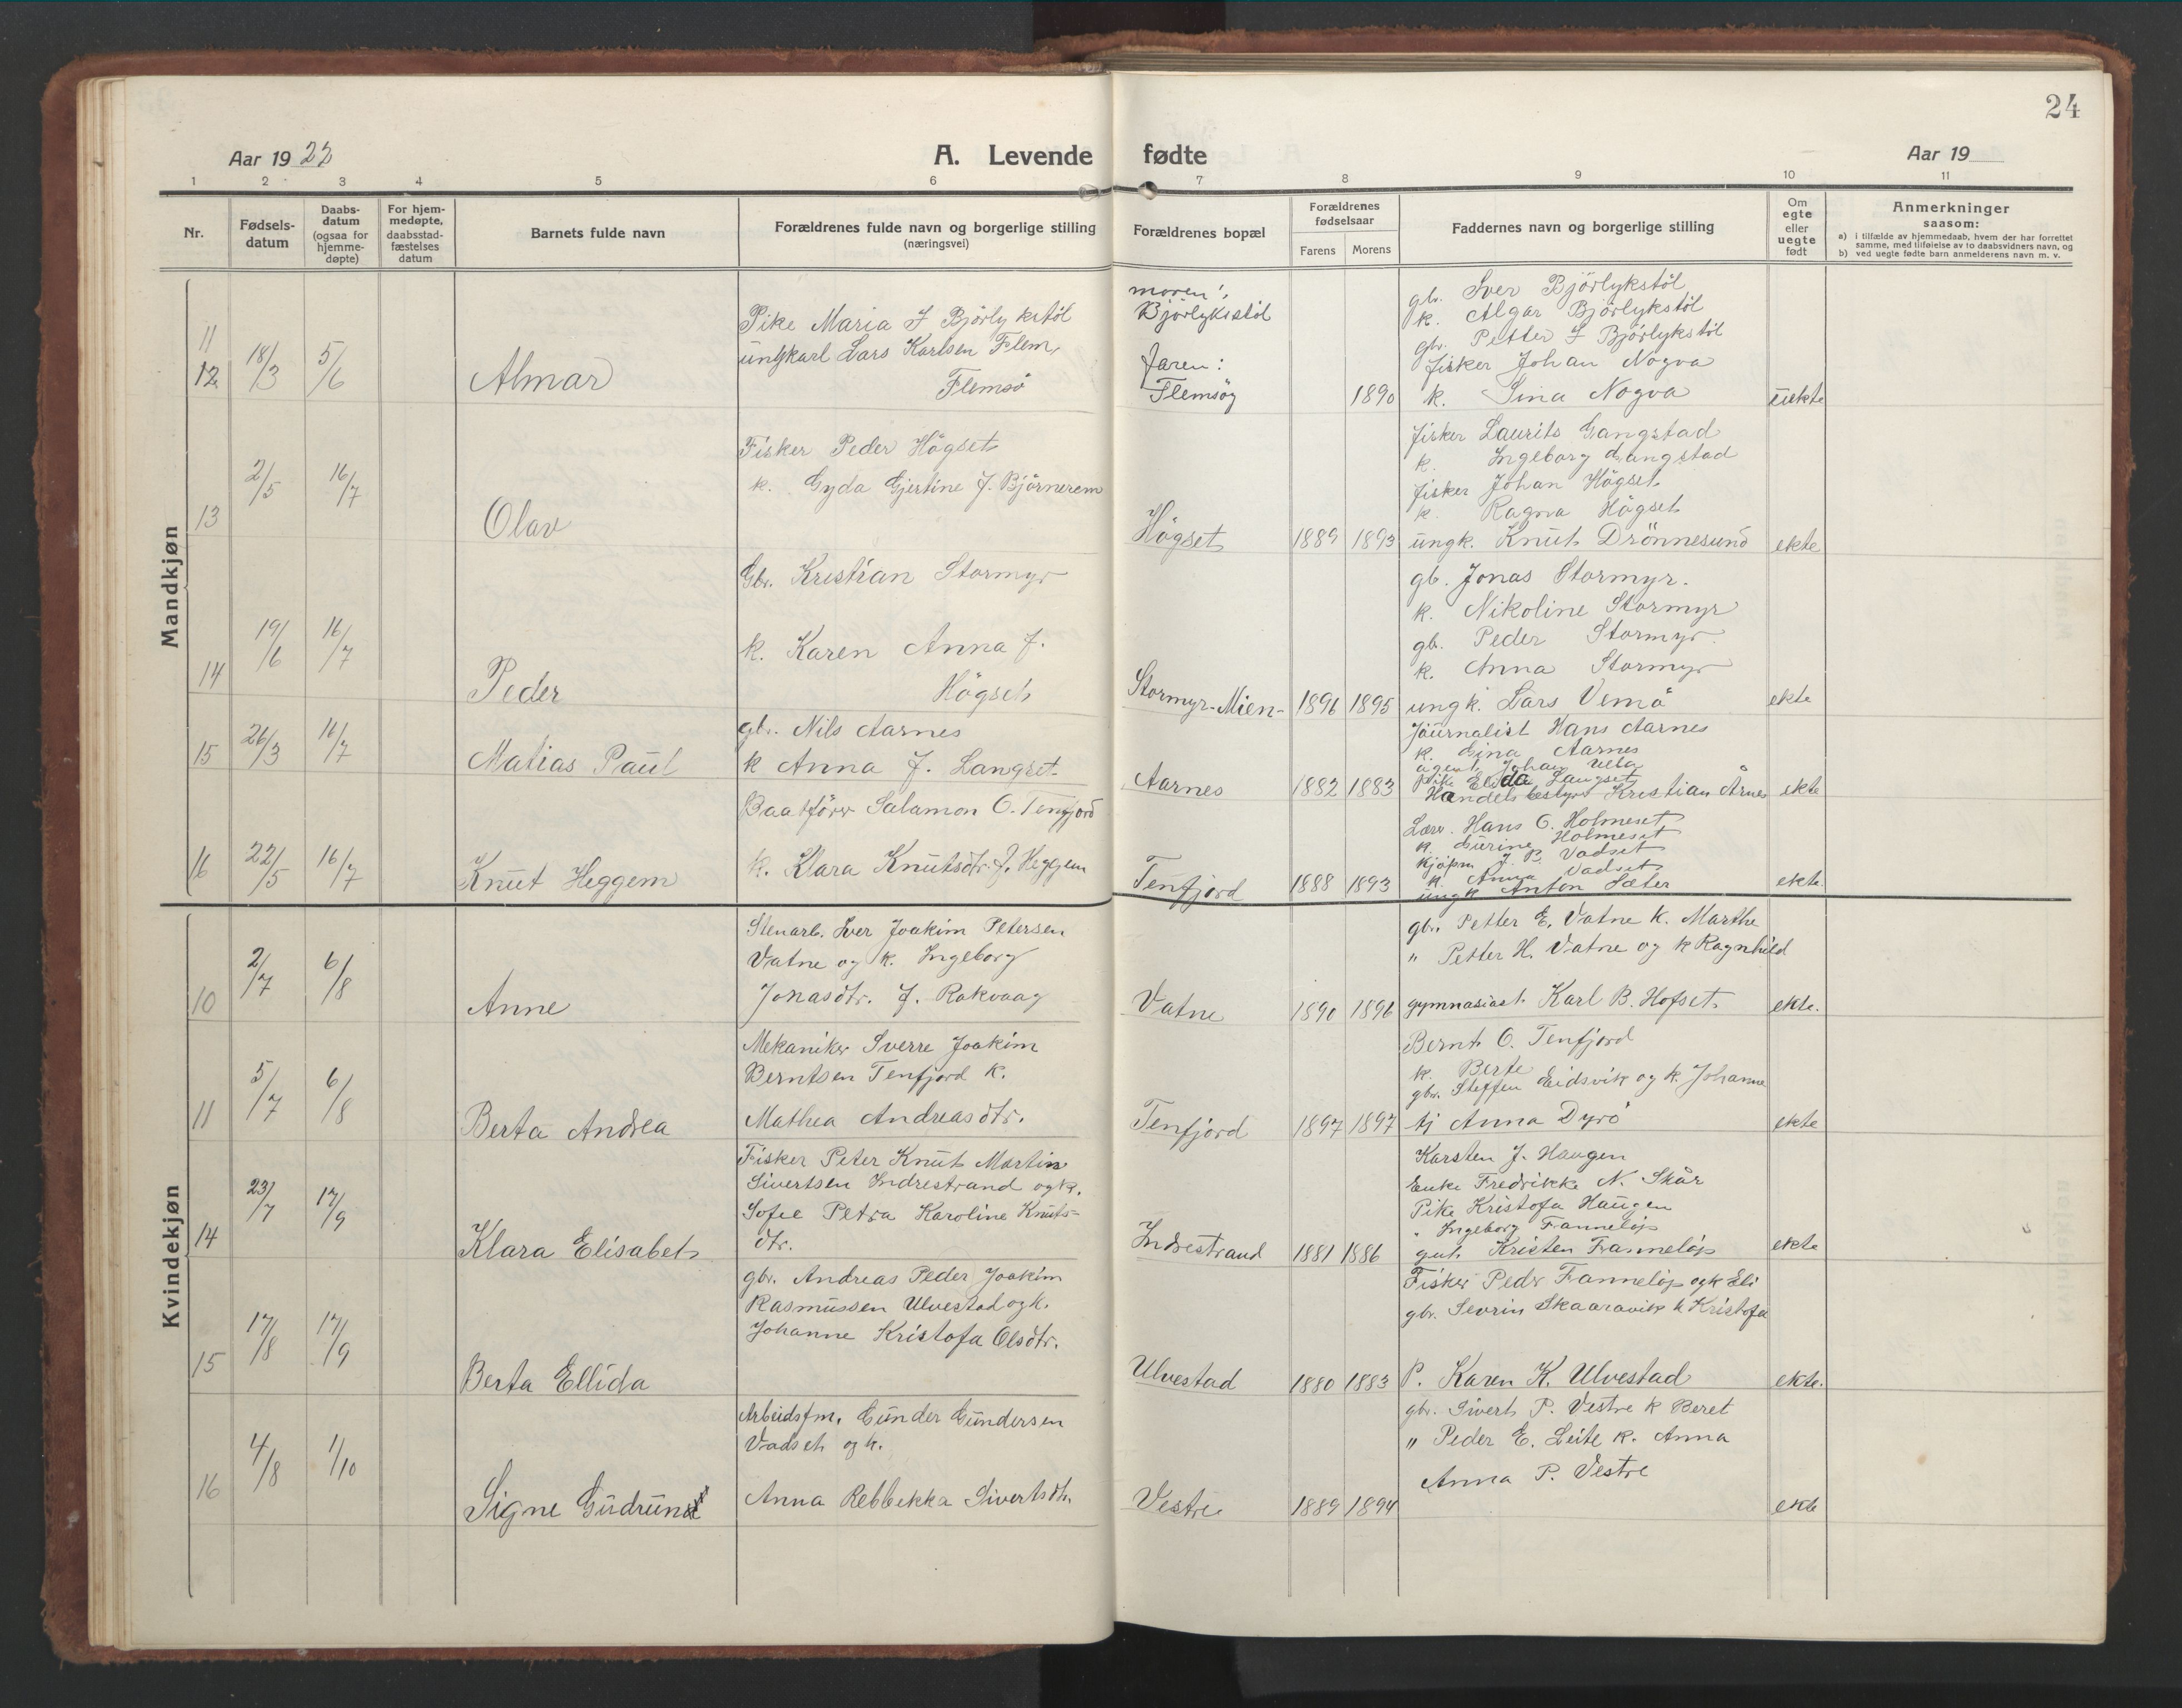 24
Aar 19 22
A. Levende fødte
Aar 19
1 2 3 4 5 6 7 8 9 10 11
Nr.
Fødsels-datum
Daabs-datum (ogsaa for hjemme-døpte)
For hjem-medøpte, daabsstad-fæstelses datum
Barnets fulde navn
Forældrenes fulde navn og borgerlige stilling (næringsvei)
Forældrenes bopæl
Forældrenes fødselsaar
Farens Morens
Faddernes navn og borgerlige stilling
Om egte eller uegte født
Anmerkninger saasom:
a) i tilfælde av hjemmedaab, hvem der har forrettet samme, med tilføielse av to daabsvidners navn, og
b) ved uegte fødte barn anmelderens navn m. v.
Mandkjøn
11
12 18/3 5/6 Almar
Pike Maria I Björlykstöl
ungkarl Lars Karlsen Flem,
Flemsö
moren:
Björlykstöl
Faren:
Flemsöy
1890
gbr. Iver Björlykstöl
k. Algar Björlykstöl
gbr. Petter I Björlykstöl
fisker Johan Nogva
k. Sina Nogva
uekte
13 2/5 16/7 Olav
Fisker Peder Högset
k. Gyda Gjertine f. Björnerem
Högset 1889 1893
fisker Laurits Gangstad
k. Ingeborg Gangstad
fisker Johan Högset
k. Ragna Högset
ungk. Knut Drönnesund
ekte
14 19/6 16/7 Peder
Gbr. Kristian Stormyr
k. Karen Anna f.
Högset
Stormyr-Mien- 1896 1895
gb. Jonas Stormyr.
k. Nikoline Stormyr
gb. Peder Stormyr
k. Anna Stormyr
ungk. Lars Vemö
ekte
15 26/3 16/7 Matias Paul
gbr. Nils Aarnes
k Anna f. Langset
Aarnes 1882 1883
Journalist Hans Aarnes
k. Gina Aarnes
agent Johan Ulla
pike Elida Langset
Handelsbestyrer Kristian Årnes
ekte
16 22/5 16/7 Knut Heggem
Baatförer Salamon O. Tenfjord
k. Klara Knutsdtr. f. Heggem
Tenfjord 1888 1893
Lærer. Hans O. Holmeset
k. Gurine Holmeset
Kjöpm J. P. Vadset
k. Anna Vadset
ungk Anton Sæter
ekte
Kvindekjøn
10 2/7 6/8 Anne
Stenarb. Iver Joakim Petersen
Vatne og k. Ingeborg
Jonasdtr. f. Rakvaag
Vatne 1890 1896
gbr. Petter E. Vatne k. Marthe
" Petter H. Vatne og k Ragnhild
gymnasiast Karl B. Hofset
ekte.
11 5/7 6/8 Berta Andrea
Mekaniker Sverre Joakim
Berntsen Tenfjord k.
Mathea Andreasdtr.
Tenfjord 1897 1897
Bernt O. Tenfjord
k. Berte
gbr. Steffen Eidsvik og k. Johanne
tj Anna Dyrö
ekte
14 23/7 17/9 Klara Elisabet
Fisker Peter Knut Martin
Sivertsen Indrestrand og k.
Sofie Petra Karoline Knuts-
dtr.
Indrestrand 1881 1886
Karsten J. Haugen
Enke Fredrikke N. Skår
Pike Kristofa Haugen
" Ingeborg Fanneløp
gut Kristen Fanneløp
ekte
15 17/8 17/9 Berta Ellida
gbr. Andreas Peder Joakim
Rasmussen Ulvestad og k.
Johanne Kristofa Olsdtr.
Ulvestad 1880 1883
Fisker Peder Fanneløp og k Eli
gbr. Sevrin Skaaravik k Kristofa
P. Karen K. Ulvestad
ekte.
16 4/8 1/10 Signe Gudrun
Arbeidsfm. Gunder Gundersen
Vadset og k.
Anna Rebbekka Sivertsdtr.
Vestre 1889 1894
gbr. Sivert P. Vestre k Beret
" Peder E. Leite k. Anna
Anna P. Vestre
ekte